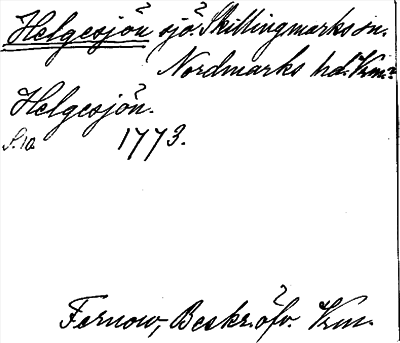 Helgesjön sjö Skillingmarks sn.
Nordmarks hd. Vrm.
Helgesjön.
S. 12 1773.
Fernow, Beskr. öfv. Vrm.